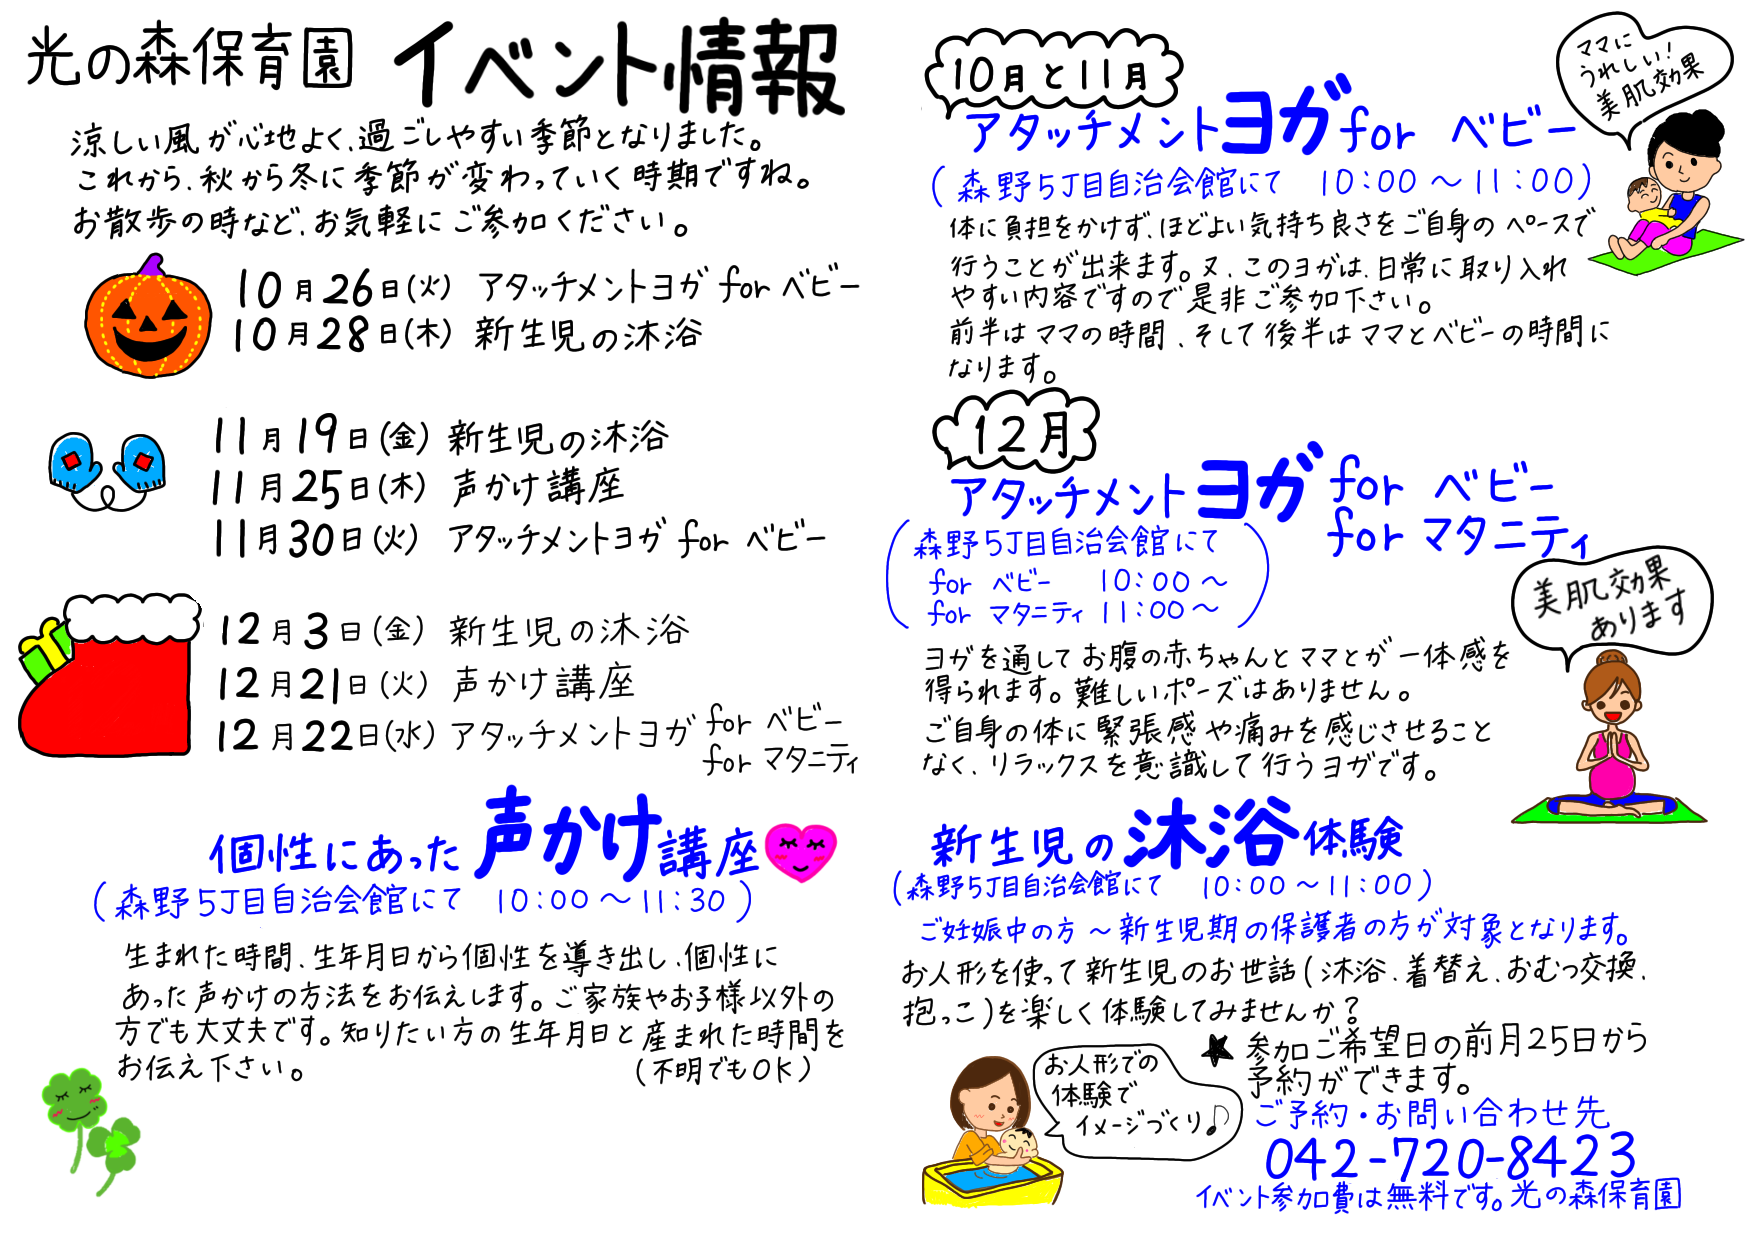 光の森保育園 イベント情報
涼しい風が心地よく、過ごしやすい季節となりました。
これから、秋から冬に季節が変わっていく時期ですね。
お散歩の時など、お気軽にご参加ください。
10月26日(火) アタッチメントヨガ for ベビー
10月28日(木) 新生児の沐浴
11月19日(金) 新生児の沐浴
11月25日(木) 声かけ講座
11月30日(火) アタッチメントヨガ for ベビー
12月3日(金) 新生児の沐浴
12月21日(火) 声かけ講座
12月22日(水) アタッチメントヨガ for ベビー
for マタニティ
個性にあった声かけ講座
(森野5丁目自治会館にて 10:00～11:30)
生まれた時間、生年月日から個性を導き出し、個性に
あった声かけの方法をお伝えします。ご家族やお子様以外の
方でも大丈夫です。知りたい方の生年月日と産まれた時間を
お伝え下さい。 (不明でもOK)
10月と11月
アタッチメントヨガ for ベビー
ママに
うれしい!
美肌効果
(森野5丁目自治会館にて 10:00～11:00)
体に負担をかけず、ほどよい気持ち良さをご自身のペースで
行うことが出来ます。又、このヨガは、日常に取り入れ
やすい内容ですので是非ご参加下さい。
前半はママの時間、そして後半はママとベビーの時間に
なります。
12月
アタッチメントヨガ for ベビー
for マタニティ
(森野5丁目自治会館にて
for ベビー 10:00～
for マタニティ 11:00～)
美肌効果
あります
ヨガを通してお腹の赤ちゃんとママとが一体感を
得られます。難しいポーズはありません。
ご自身の体に緊張感や痛みを感じさせること
なく、リラックスを意識して行うヨガです。
新生児の沐浴体験
(森野5丁目自治会館にて 10:00～11:00)
ご妊娠中の方～新生児期の保護者の方が対象となります。
お人形を使って新生児のお世話(沐浴、着替え、おむつ交換、
抱っこ)を楽しく体験してみませんか?
お人形での
体験で
イメージづくり♪
★ 参加ご希望日の前月25日から
予約ができます。
ご予約・お問い合わせ先
042-720-8423
イベント参加費は無料です。光の森保育園